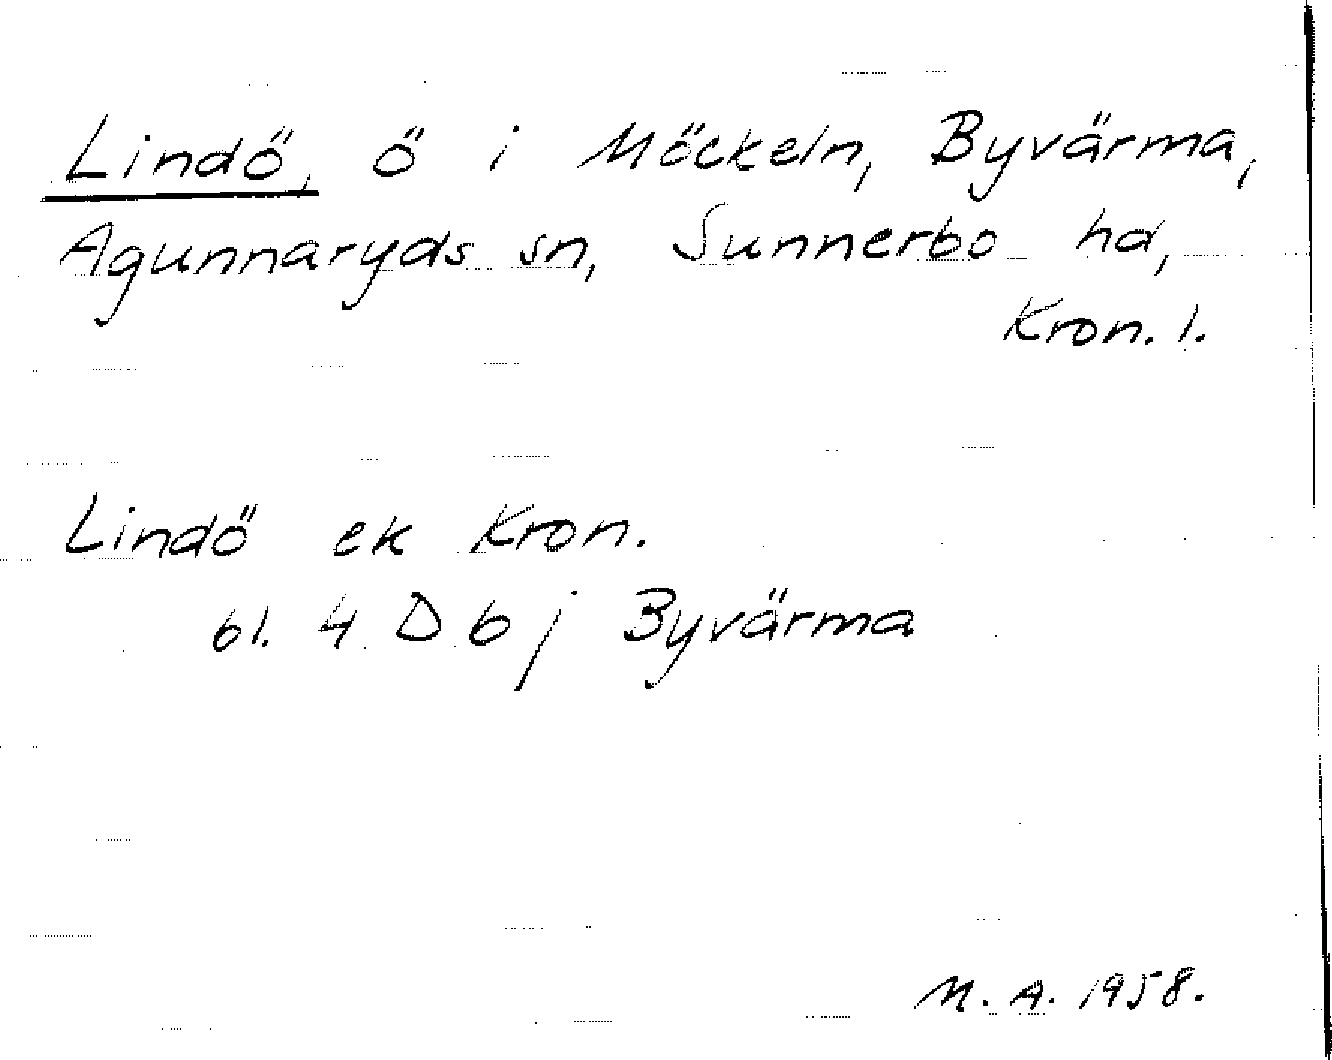 Lindö, ö i Möckeln, Byvärma,
Agunnaryds sn, Sunnerbo hd,
Kron. l.
Lindö ek Kron.
bl. 4 D 6 j Byvärma
M. A. 1958.